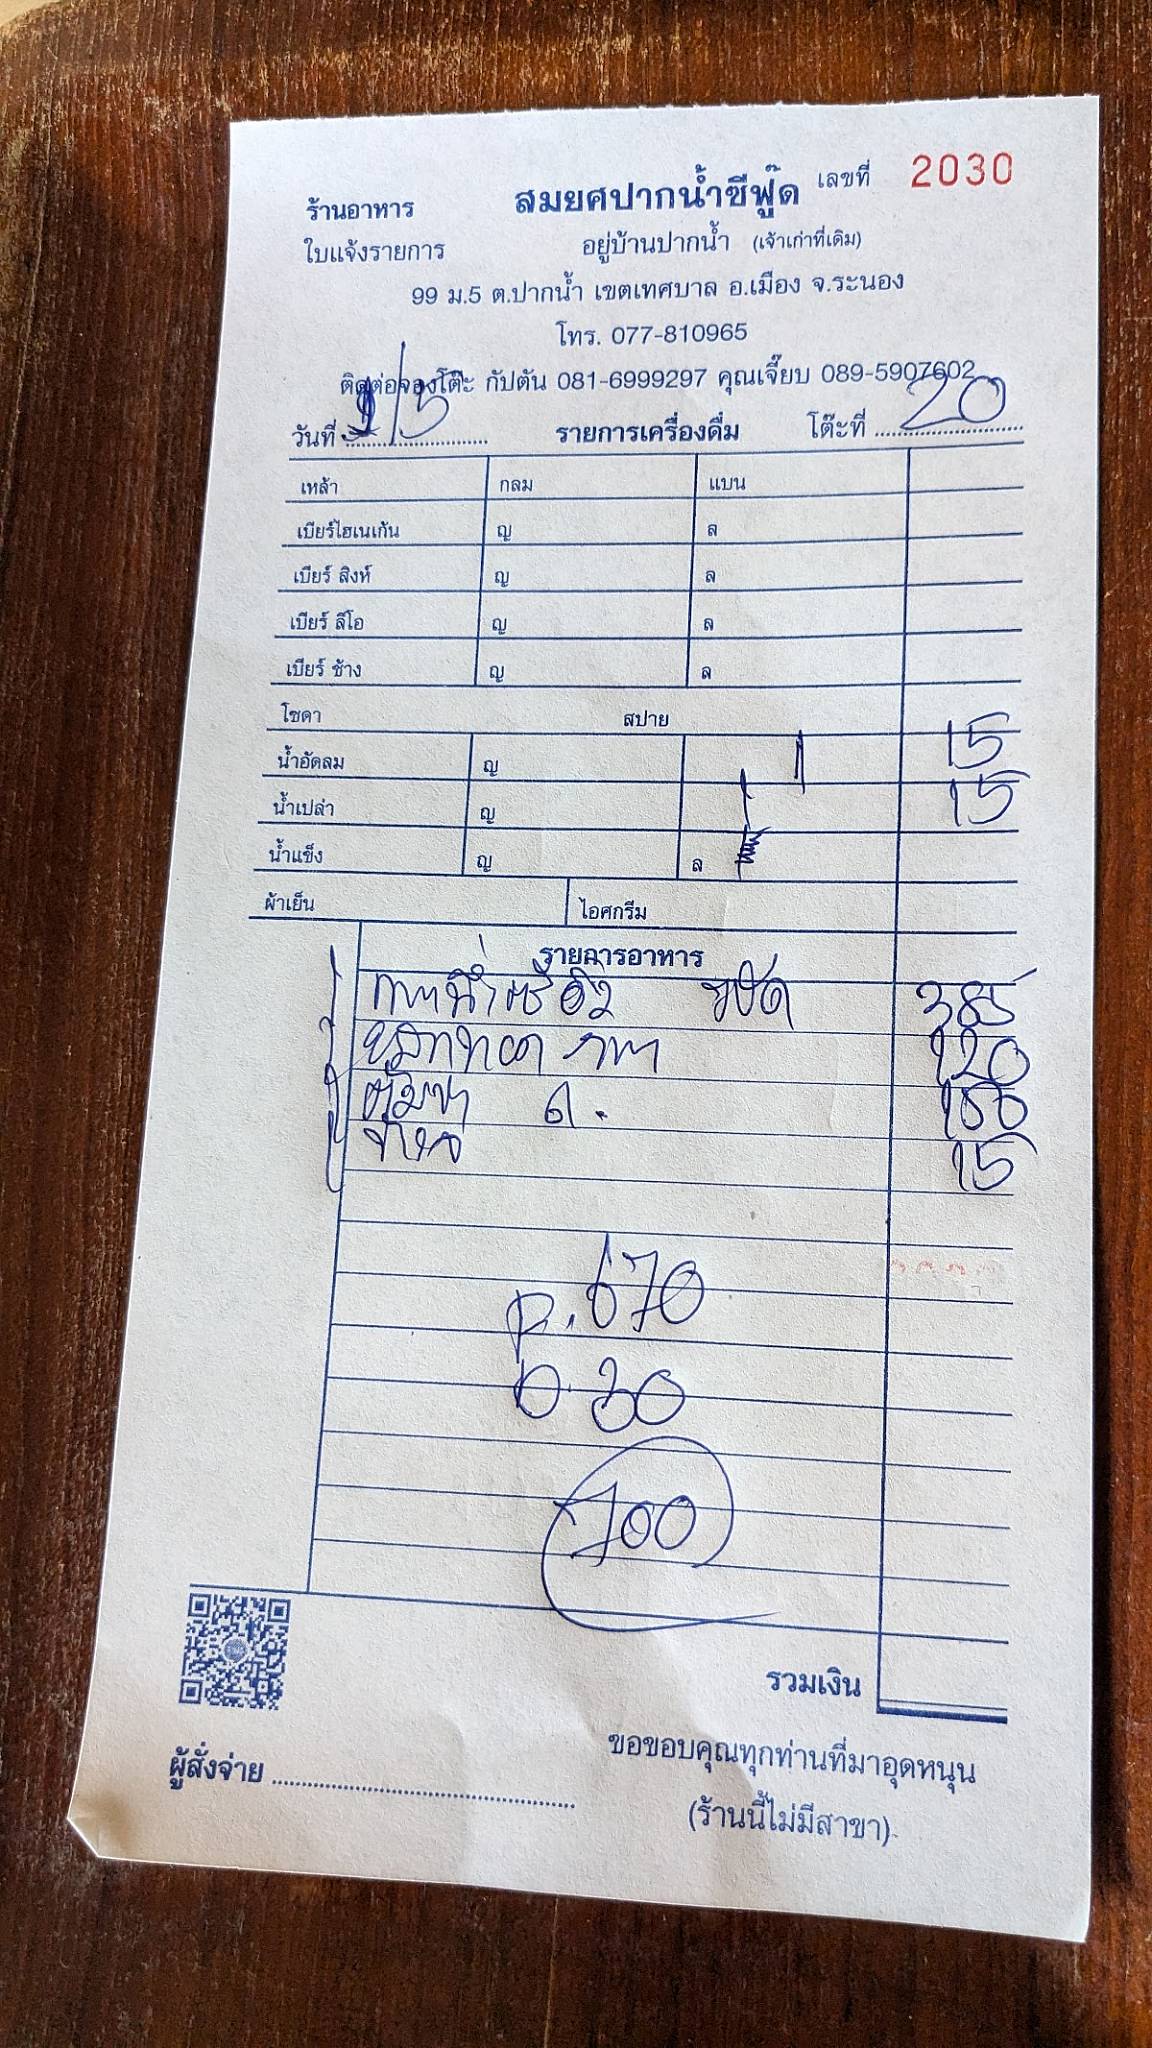 ร้านอาหาร สมยศปากน้ำซีฟู๊ด เลขที่ 2030
ใบแจ้งรายการ อยู่บ้านปากน้ำ (เจ้าเก่าที่เดิม)
99 ม.5 ต.ปากน้ำ เขตเทศบาล อ.เมือง จ.ระนอง
โทร. 077-810965
ติดต่อจองโต๊ะ กัปตัน 081-6999297 คุณเจี๊ยบ 089-5907602
วันที่ /5 รายการเครื่องดื่ม โต๊ะที่ 20
เหล้า กลม แบน
เบียร์ไฮเนเก้น ญ ล
เบียร์ สิงห์ ญ ล
เบียร์ ลีโอ ญ ล
เบียร์ ช้าง ญ ล
โซดา สปาย
น้ำอัดลม ญ 1 15
น้ำเปล่า ญ 1 15
น้ำแข็ง ญ ล
ผ้าเย็น ไอศกรีม
รายการอาหาร
385
120
15
670
30
700
รวมเงิน
ผู้สั่งจ่าย
ขอขอบคุณทุกท่านที่มาอุดหนุน
(ร้านนี้ไม่มีสาขา)